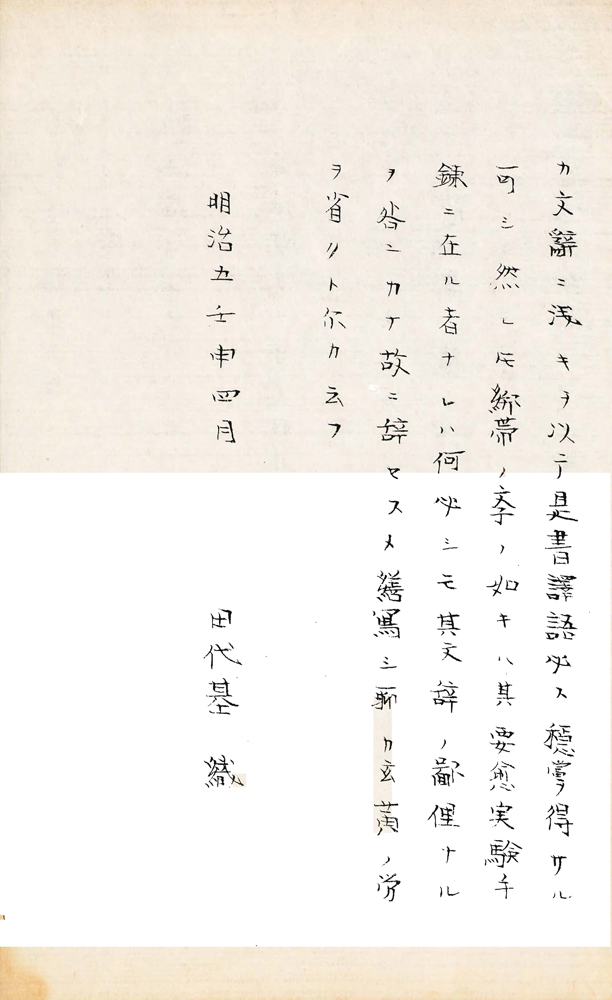 カ文辭ニ浅キヲ以テ是書譯語必ス穏當ヲ得サル
可シ然レ𪜈繃帯ノ斈ノ如キハ其要愈実験手
錬ニ在ル者ナレハ何必シモ其文辞ノ鄙俚ナル
ヲ咎ニカナ故ニ辞セスメ繕寫シ聊カ玄黄ノ労
ヲ省クト尓カ云フ
明治五壬申四月
田代基織